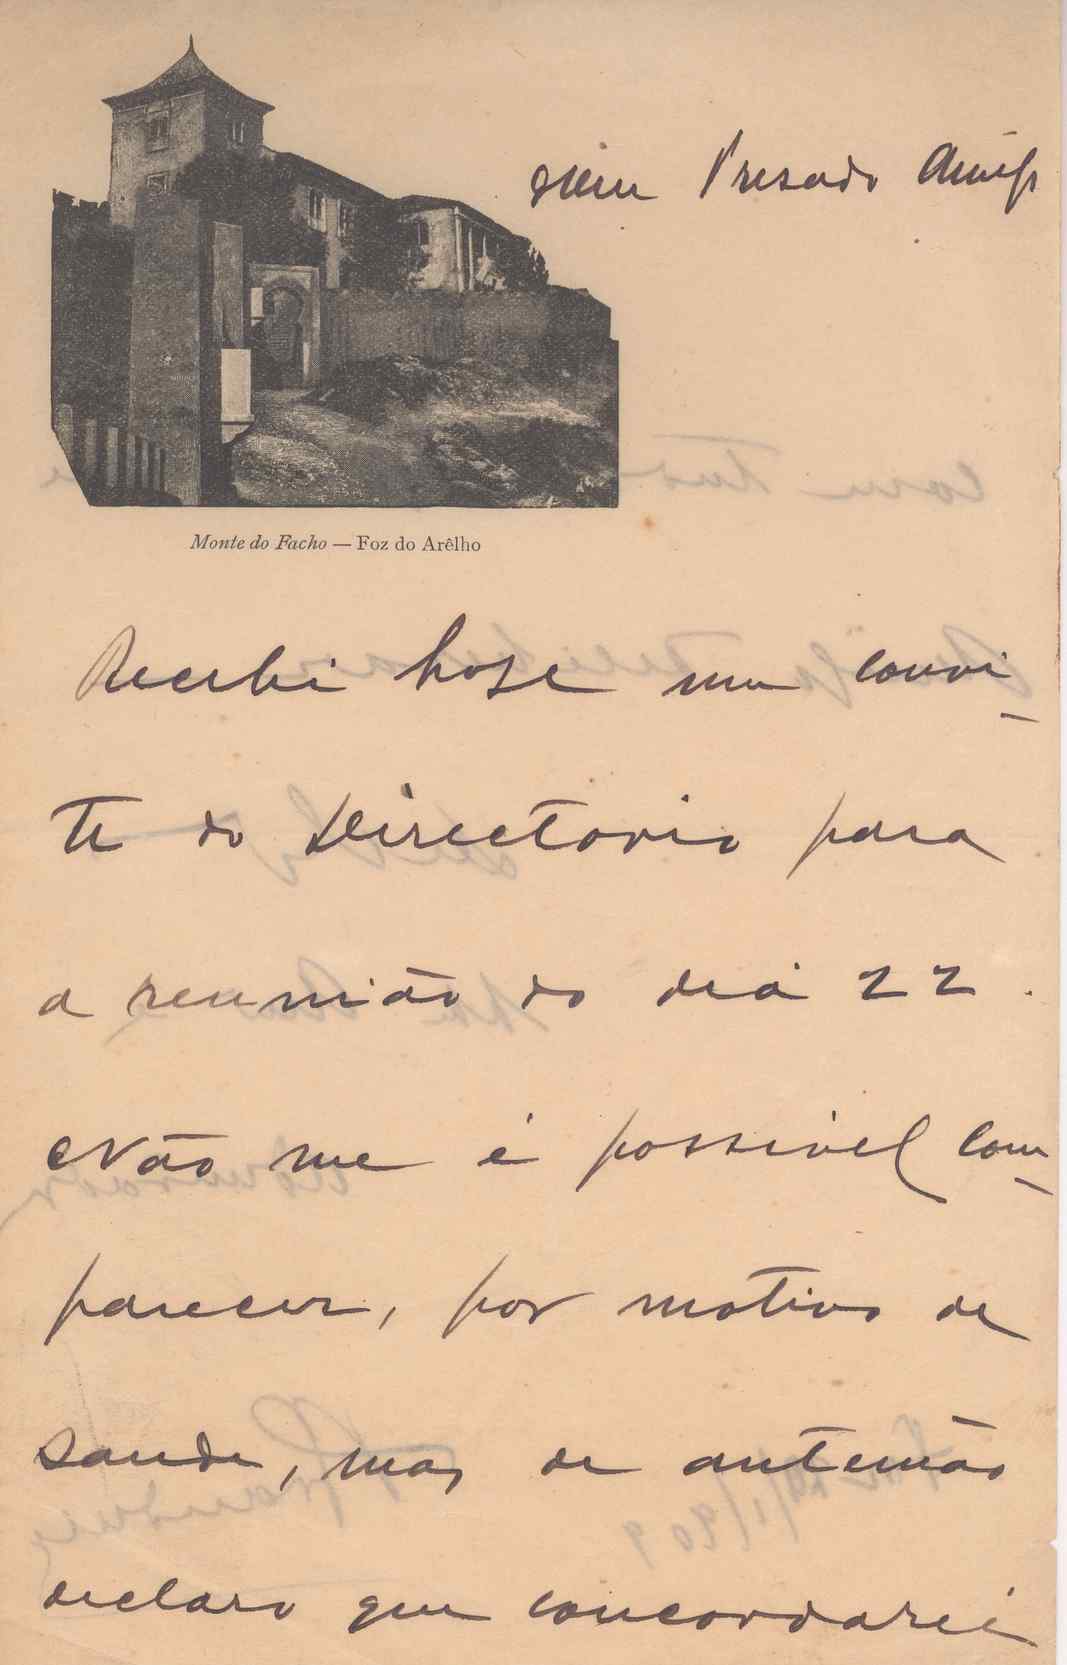 Meu Presado Amigo
Monte do Facho — Foz do Arêlho
Recebi hoje um convi-
te do Directorio para
a reunião do dia 22.
Não me é possivel com-
parecer, por motivo de
saude, mas de antemão
declaro que concordarei